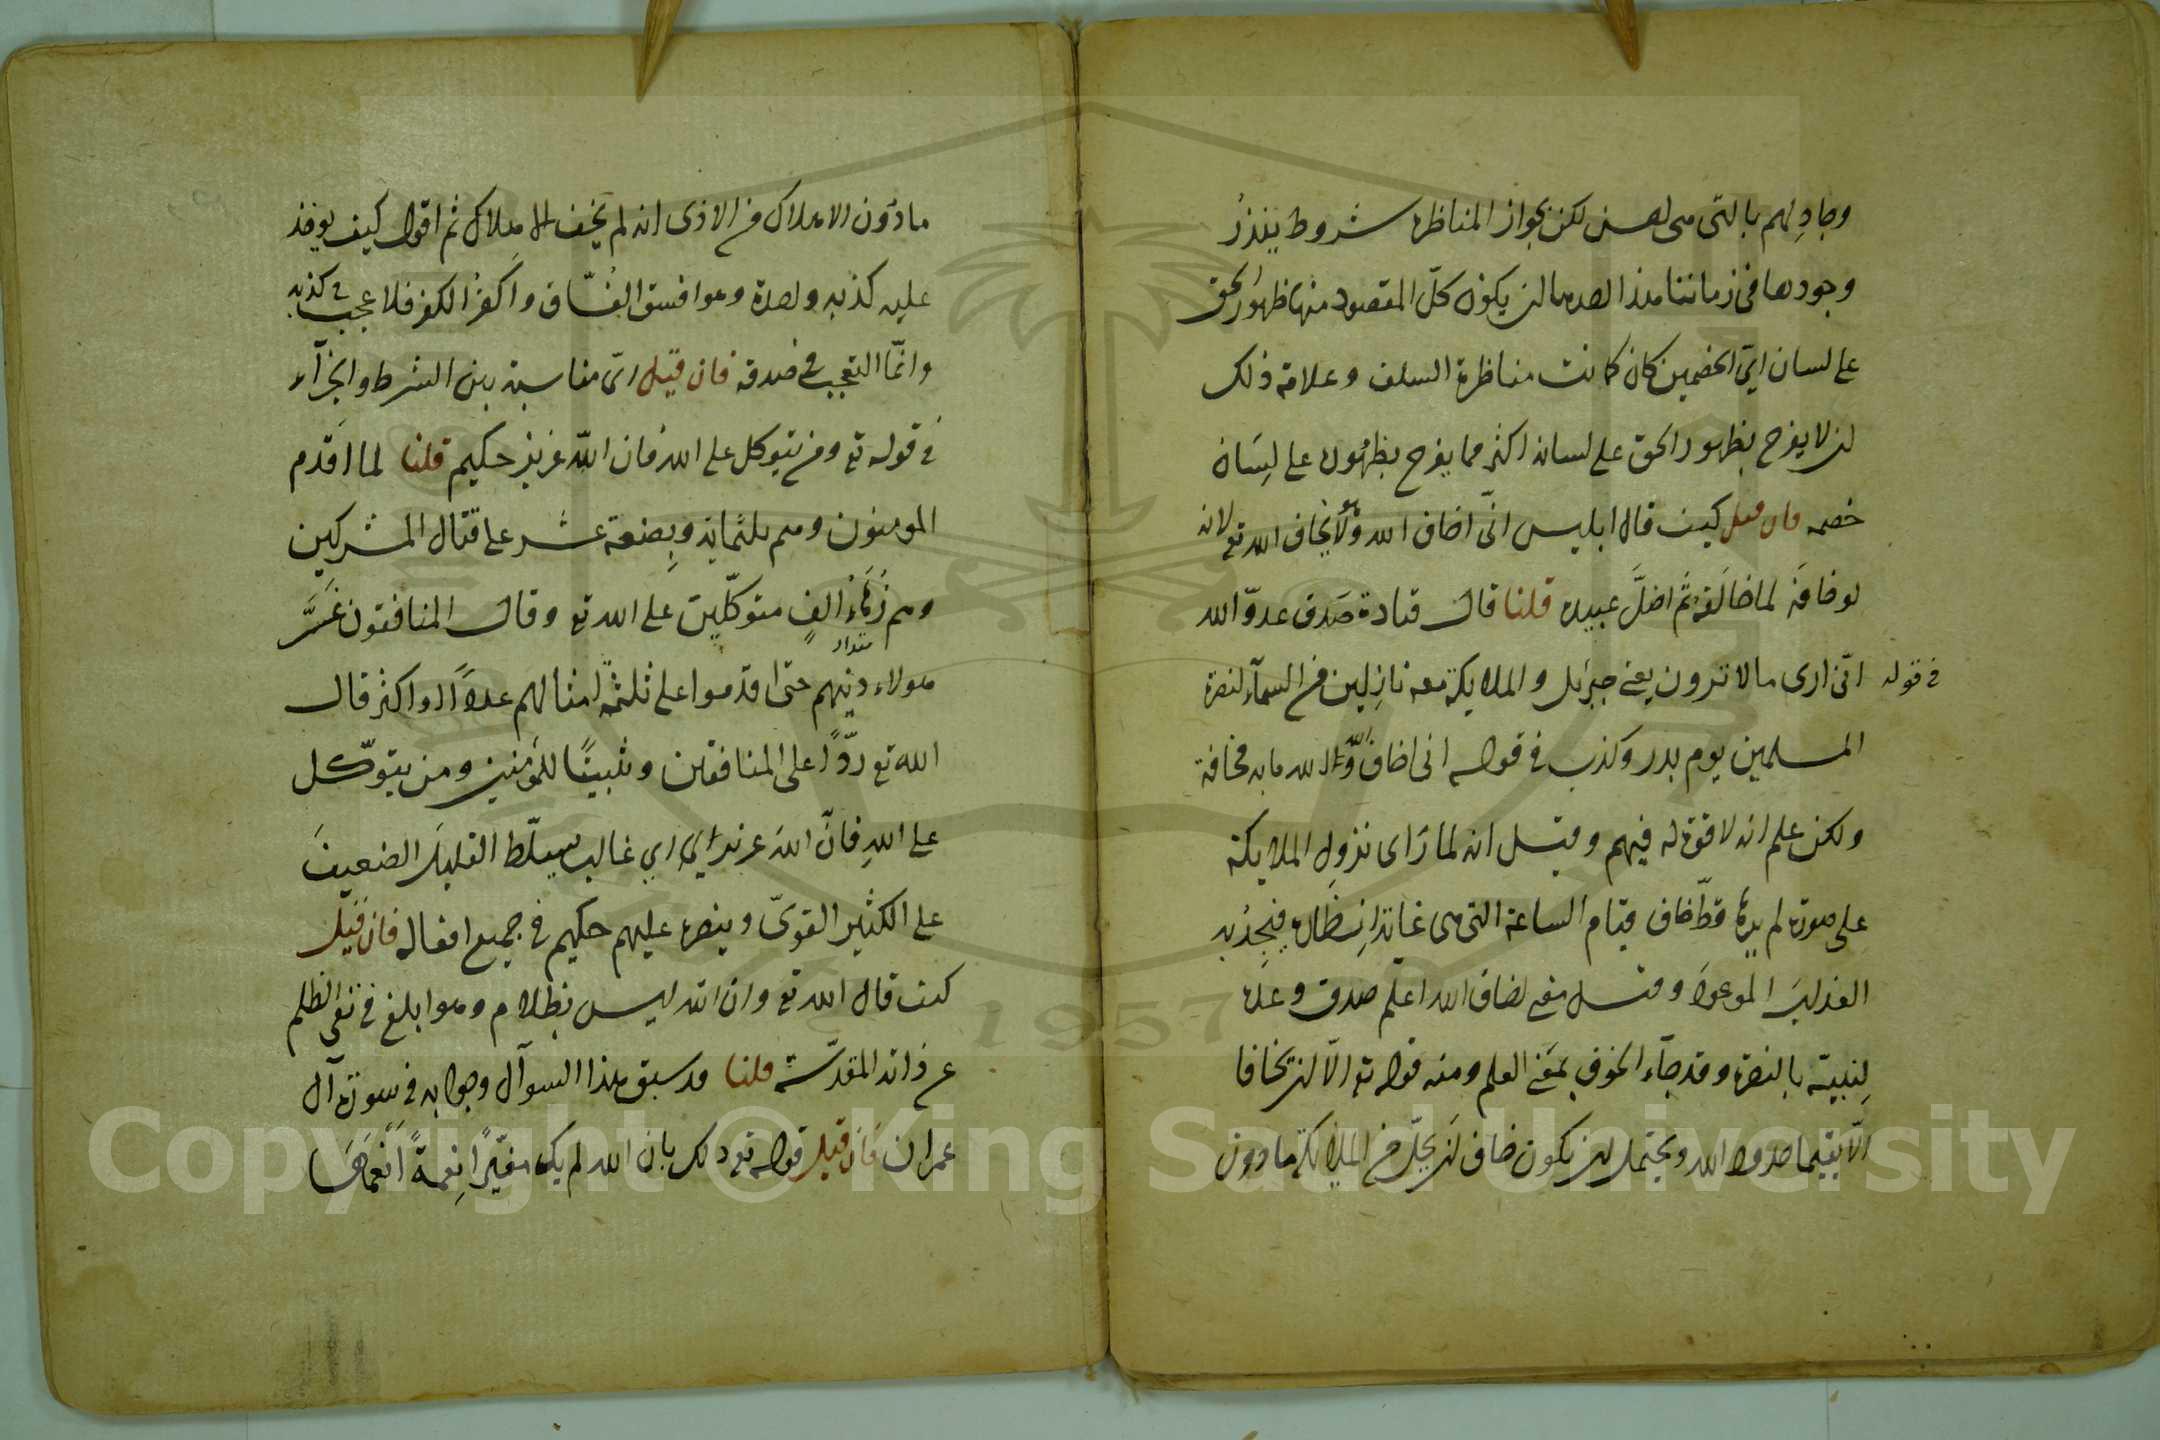 وجادِلهم بالتى هى احسن لكن لجواز المناظرة شروط يندرُ
وجودها فى زماننا هذا احدها ان يكون كلّ المقصود منها ظهورُ الحق
على لسان اىّ الخصمين كان كما كانت مناظرة السلف وعلامة ذلك
ان لا يفرح بظهور الحق على لسانه اكثر مما يفرح بظهوره على لِسَان
خصمه فان قيل كيف قال ابليس انّى اخاف الله وهو لا يخاف الله تع لانه
لو خافَهُ لما خالَفَه ثم اضلَّ عبيده قلنا قال قتادة صَدق عدوّ الله
فى قوله انّى ارى مالا ترون يعنى جبرئل والملايكة معه نازلين من السمآء لنصرة
المسلمين يوم بدر وكذب فى قوله انى اخاف الله والله ما به مخافة
ولكن علم انه لا قوة له فيهم وقيل انه لما رَاى نزول الملايكة
على صورة لم يرها قطّ خاف قيام الساعة التى هى غاية انِظاره فيَحِلُ به
العذابَ الموعود وقيل معنى اخاف الله اعلم صدق وعده
لِنبيّه بالنصرة وقد جآء الخوف بمَعنى العلم ومنه قوله تع الّا ان يخافا
الّا يقيما حدود الله ويحتمل ان يكون خاف اَن يحلّ من الملايكة ما دون
ما دون الاهلاك من الاذى انه لم يخف الاهلاك ثم اقول كيف يوخذ
عليه كذبه واحدة وهو افسق الفُسّاق واكفر الكفرة فلا عجب فى كذبه
وانّما التعجب فى صدقه فان قيل اىّ مناسبة بين الشرط والجزآء
فى قوله تع ومن يتوكل على الله فان اللّه عزيز حكيم قلنا لما اَقدم
المومنون وهم ثلثماية وبِضعة عشر على قتال المشركين
وهم زُهَاءُ الفٍ متوكّلين على الله تع وقال المنافقون غَرَّ
هولاء دينهم حتى اقدموا على ثلثة امثالهم عددًا او اكثر قال
مقدار
الله تع ردًّا على المنافقين وتثبيتًا للمؤمنين ومن يتوكّل
على اللهِ فانّ اللهَ عزيز اى غالب يسلّط القليلَ الضعيفَ
على الكثير القوىّ وينصره عليهم حكيم فى جميع افعاله فان قيل
كيف قال الله تع وان الله ليس بظلام وهو ابلغ فى نفى الظلم
عن ذاته المقدّسة قلنا قد سبق هذا السوآل وجوابه فى سورة آل
عمران فان قيل قوله تع ذلك بان الله لم يك مغيّرًا نِعمةً اَنْعَمَهَا
1957
Copyright © King Saud University